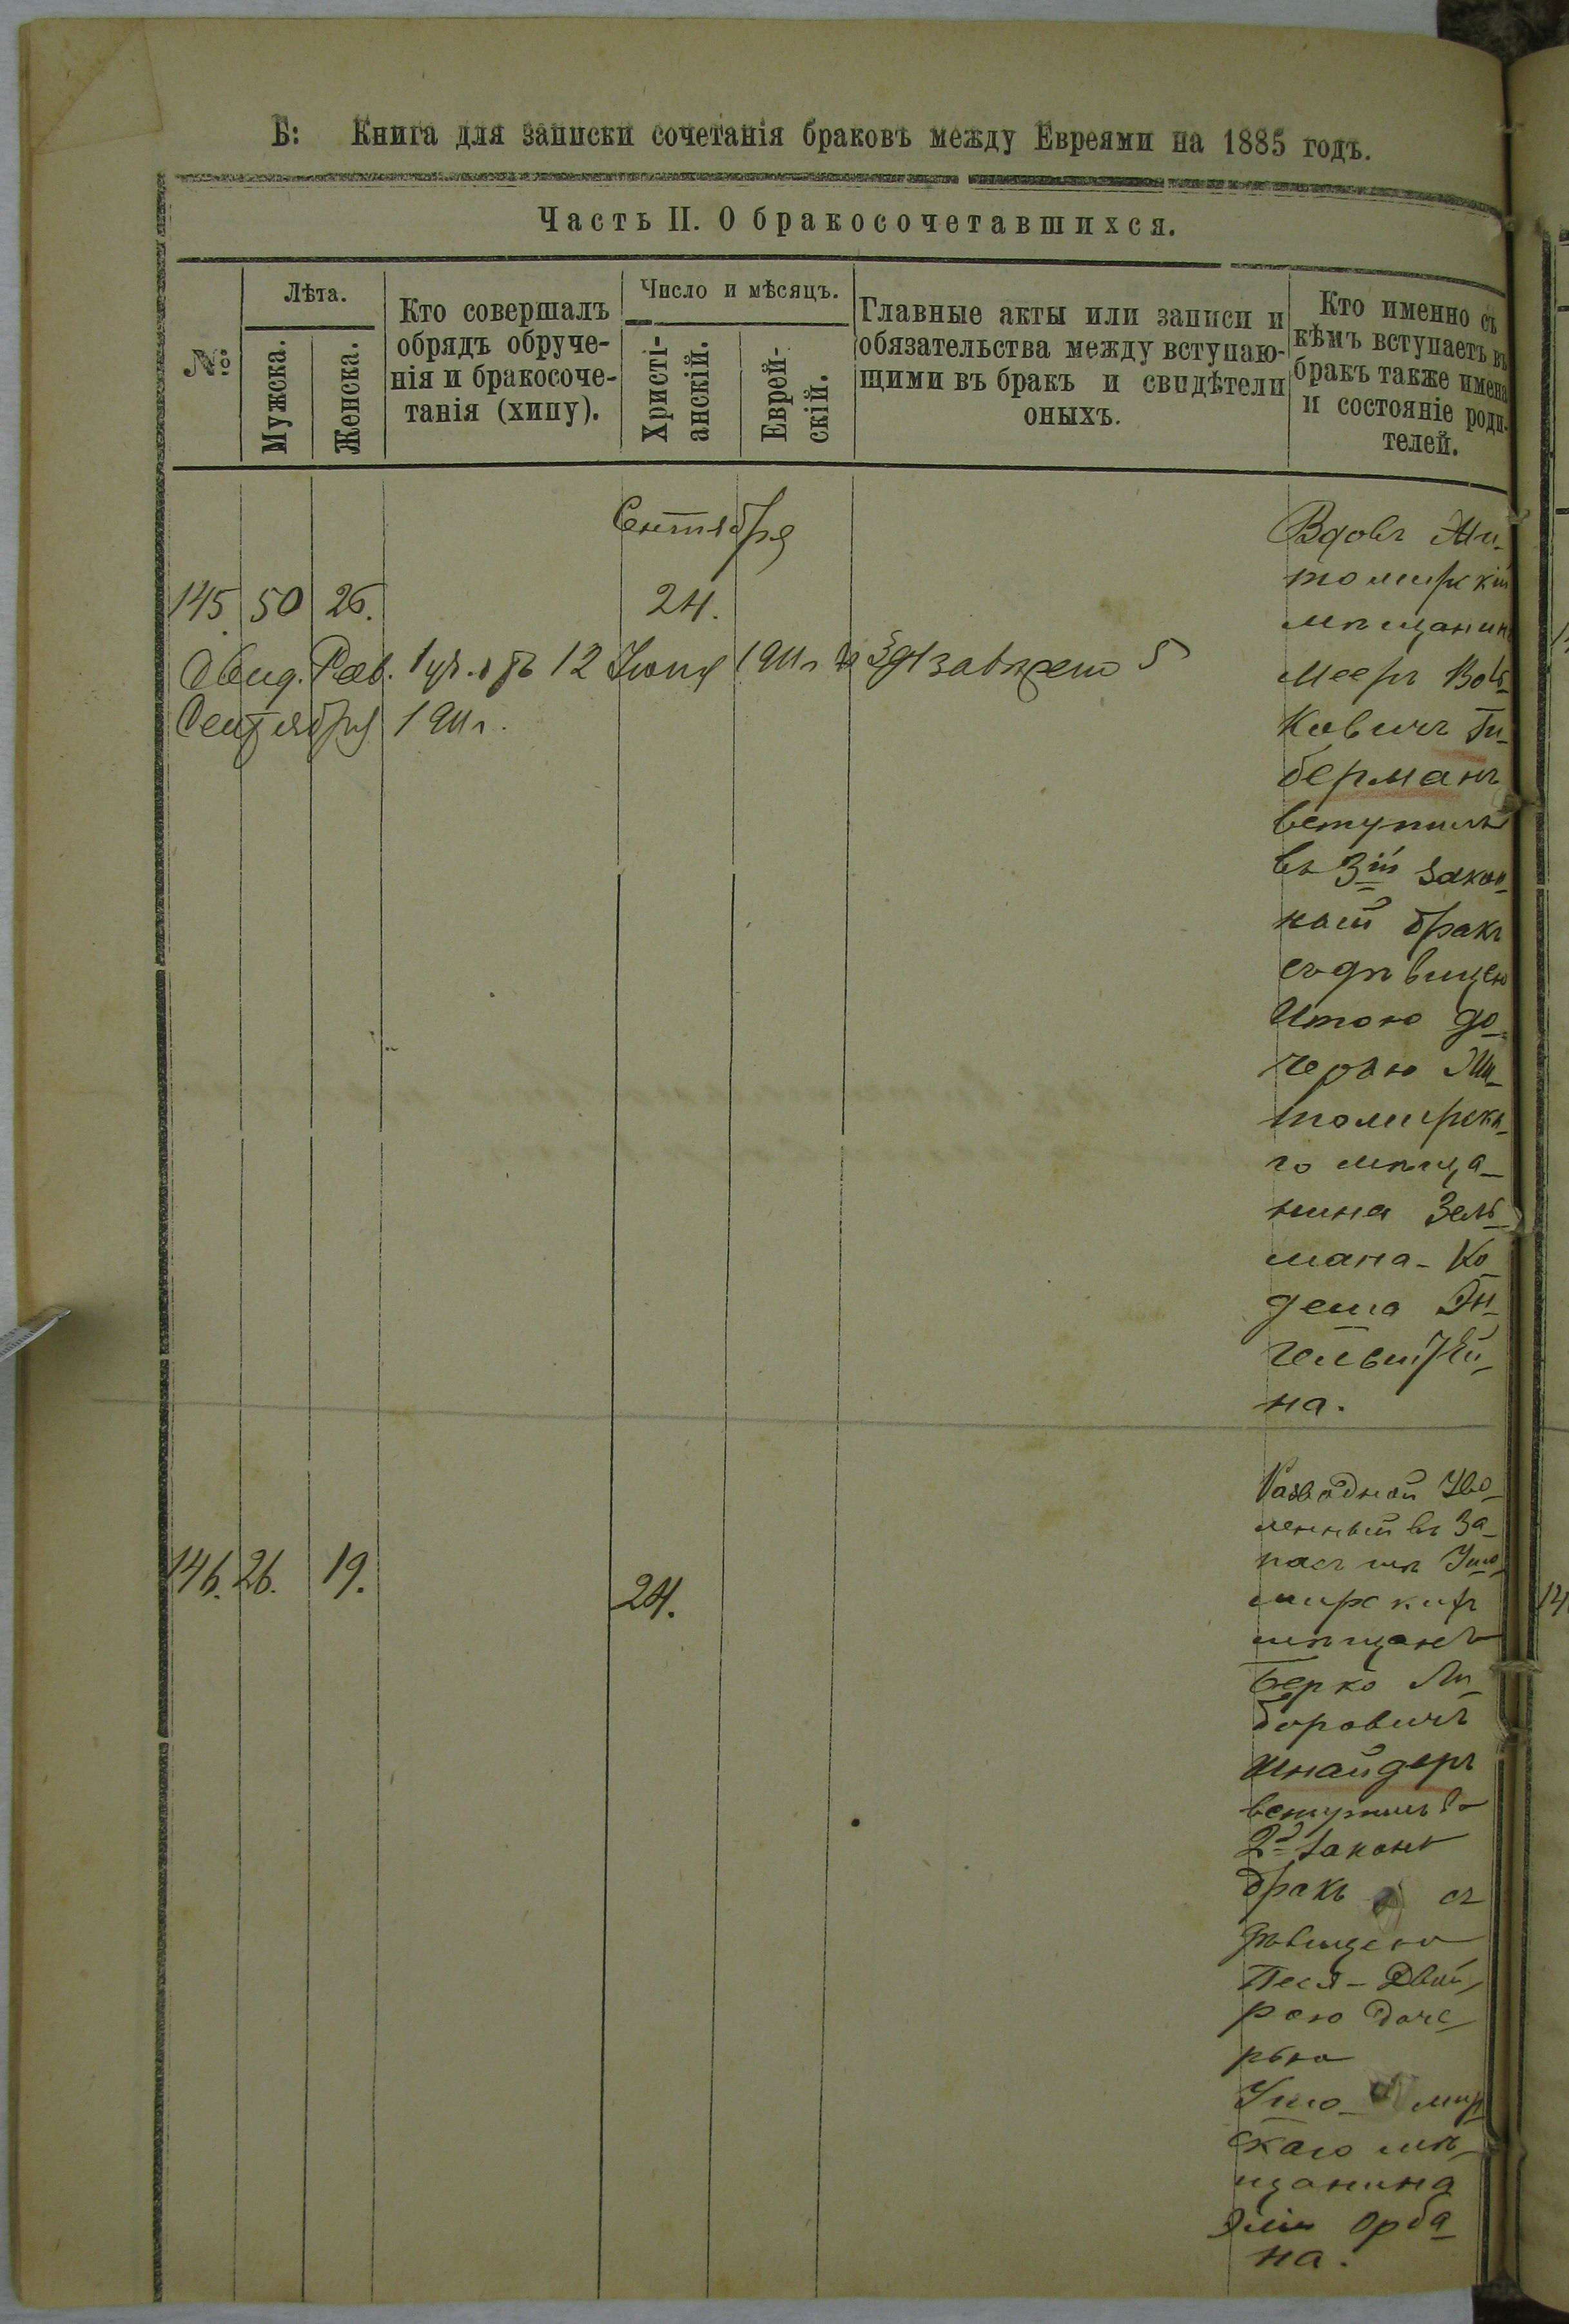 Б: Книга для записки сочетанія браковъ между Евреями на 1885 годъ.
Часть II. О бракосочетавшихся.
№
Лѣта.
Мужска.
Женска.
Кто совершалъ
обрядъ обруче-
нія и бракосоче-
танія (хипу).
Число и мѣсяцъ.
Христі-
анскій.
Еврей-
скій.
Главные акты или записи и
обязательства между вступаю-
щими въ бракъ и свидѣтели
оныхъ.
Кто именно съ
кѣмъ вступаетъ въ
бракъ также имена
и состояніе роди-
телей.
Сентября
145. 50 26. 24.
Рав. 12 Іюня 1911 г 5
Сентября 1911 г.
Вдовъ Жи-
томирскій
мѣщанинъ
Мееръ Воль-
ковичъ Ги-
берманъ
вступилъ
въ 3ій закон-
ный бракъ
съ дѣвицею
Итою до-
черью Жи-
томирска-
го мѣща-
нина Зель-
мана-Ко-
деша Эн-
гельштей-
на.
146. 26. 19. 24.
Разводной Уво-
ленный въ За-
пасъ изъ Ушо-
мирскихъ
мѣщанъ
Берко Ли-
боровичъ
Шнайдеръ
вступилъ во
2й законъ
бракъ съ
дѣвицею
Песя-Двой-
рою доче-
рью
Ушо-мир
скаго мѣ-
щанина
Эліи Орба-
на.